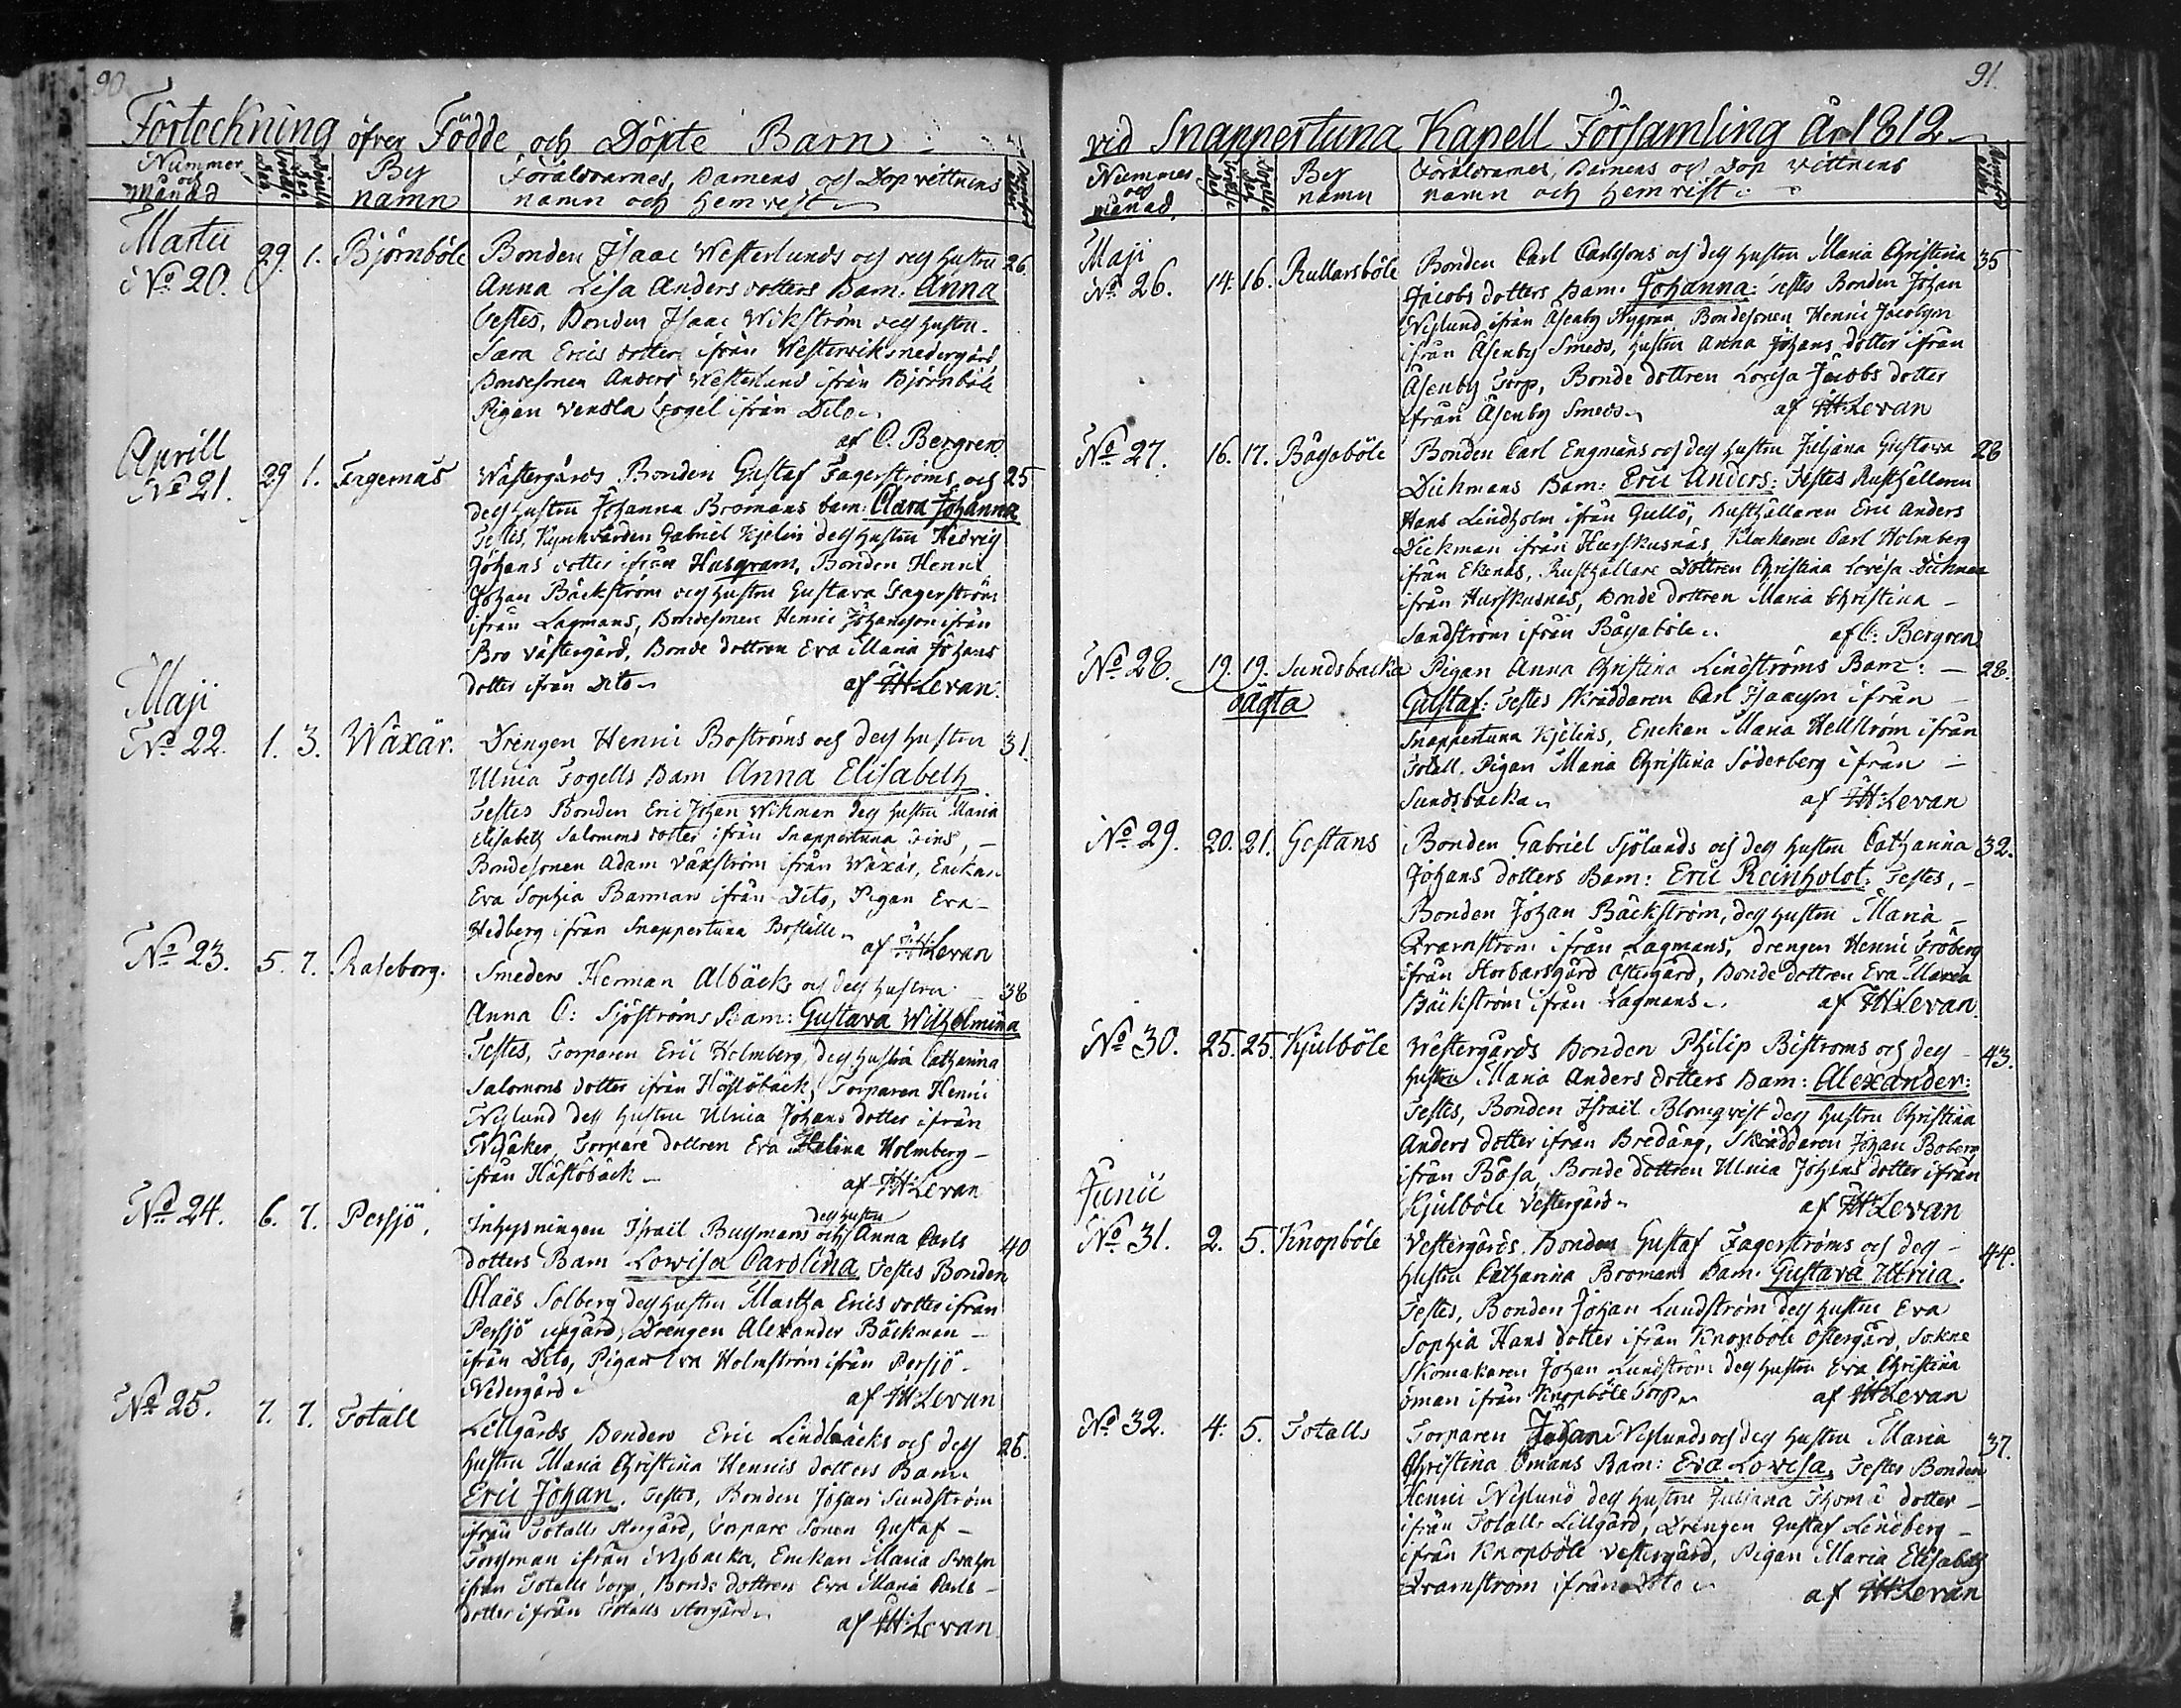 90.
Förteckning öfver Födde och Döpte Barn
Nummer och Månad
Födde den
Döpte den
By namn
Föräldrarnes, Barnens och Dop vittnens
namn och hemvist
Martii
N:o 20. 29. 1. Björnböle
Bonden Isaac Westerlunds och deß hustru 26.
Anna Lisa Anders dotters Barn: Anna
Testes, Bonden Isaac Wikström deß hustru
Sara Erics dotter ifrån Westerviksnedergård
Bondesonen Anders Westerlund ifrån Björnböle
Pigan Vendla Fogel ifrån Dito
af C. Bergren
Aprill
N:o 21. 29 1. Fagernäs
Wästergårds Bonden Gustaf Fagerströms och 25
deß hustru Johanna Bromans barn: Clara Johanna
Testes, Gabriel Kjelin deß hustru Hedvig
Johans dotter ifrån Husgram, Bonden Henric
Johan Bäckström deß hustru Gustava Fagerström
ifrån Lagmans, Bondesonen Henric Johansson ifrån
Bro västergård, Bonde dottren Eva Maria Johans
dotter ifrån Dito
af JH: Levan.
Maji
N:o 22. 1. 3. Wäxär.
Drengen Henric Boströms och deß hustru 31.
Ulrica Fogells Barn Anna Elisabeth
Testes Bonden Eric Johan Wikman deß hustru Maria
Elisabeth Salomons dotter ifrån Snappertuna Fins,
Bondesonen Adam Växström ifrån Wäxär, Enckan
Eva Sophia Barman ifrån Dito, Pigan Eva
Hedberg ifrån Snappertuna Boställe
af JH: Levan
N:o 23. 5. 7. Raseborg.
Smeden Herman Albäcks och deß hustru 38
Anna C: Sjöströms Barn: Gustava Wilhelmina
Testes, Torparen Eric Holmberg, deß hustru Catharina
Salomons dotter ifrån Hästöbäck, Torparen Henric
Nylund deß hustru Ulrica Johans dotter ifrån
Nyåker, Torpare dottren Eva Helena Holmberg
ifrån Hästöbäck
af JH: Levan
N:o 24. 6. 7. Persjö.
deß hustru
Inhysningen Israil Bugmans och Anna Carls 40
dotters Barn Lowisa Carolina Testes Bonden
Claës Solberg deß hustru Martha Erics dotter ifrån
Persjö upgård, Drengen Alexander Bäckman
ifrån Dito, Pigan Eva Holmström ifrån Persjö
Nedergård
af JH: Levan
N:o 25. 7. 7. Totall
Lillgårds Bonden Eric Lindbäcks och deß 26.
hustru Maria Christina Henrics dotters Barn
Eric Johan. Testes, Bonden Johan Sundström
ifrån Totalls Storgård, Torpare Sonen Gustaf
Forsman ifrån Nybacka, Enckan Maria
ifrån Totalls torp, Bonde dottren Eva Maria Carls
dotter ifrån Totalls Storgård
af JH: Levan
91.
vid Snappertuna Kapell Församling år 1812
Nummer och månad.
Födde den
Döpte den
By namn
Föräldrarnes, Barnens och Dop vittnens
namn och hemvist
Maji
N:o 26. 14. 16. Rullarsböle
Bonden Carl Carlssons och deß hustru Maria Christina 35
Jacobs dotters Barn: Johanna: Testes Bonden Johan
Nylund ifrån Åsenby Nygran Bondesonen Henric Jacobsson
ifrån Åsenby Smeds, hustru Anna Johans dotter ifrån
Åsenby Torp, Bonde dottren Lovisa Jacobs dotter
ifrån Åsenby Smeds
af JH: Levan
N:o 27. 16. 17. Båsaböle
Bonden Carl Engmans och deß hustru Juliana Gustava 28
Dickmans Barn: Eric Anders: Testes Rusthållaren
Hans Lindholm ifrån Gullö, Rusthållaren Eric Anders
Dickman ifrån Hurskusnäs, Klockaren Carl Holmberg
ifrån Ekenäs, Rusthållare Dottren Christina Lovisa Dickman
ifrån Hurskusnäs, Bonde dottren Maria Christina
Sandström ifrån Båsaböle
af C: Bergren
N:o 28. 19. 19. Sundsbacka
oägta
Pigan Anna Christina Lindströms Barn: 28.
Gustaf: Testes Skräddaren Carl Isacsson ifrån
Snappertuna Kjelins, Enckan Maria Hellström ifrån
Totall. Pigan Maria Christina Söderberg ifrån
Sundsbacka
af JH: Levan
N:o 29. 20. 21. Gestans
Bonden Gabriel Sjölunds och deß hustru Catharina 32.
Johans dotters Barn: Eric Reinholdt: Testes,
Bonden Johan Bäckström, deß hustru Maria
ifrån Lagmans, drengen Henric Fröberg
ifrån Östergård, Bonde Dottren Eva Maria
Bäckström ifrån Lagmans
af JH: Levan.
N:o 30. 25. 25. Kjulböle
Westergårds Bonden Philip Biströms och deß 43.
hustru Maria Anders dotters Barn: Alexander:
Testes, Bonden Israil Blomqvist deß hustru Christina
Anders dotter ifrån Bredäng, Skräddaren Johan Boberg
ifrån Båsa, Bonde dottren Ulrica Johans dotter ifrån
Kjulböle Vestergård
af JH: Levan
Junii
N:o 31. 2. 5. Knopböle
Vestergårds Bonden Gustaf Fagerströms och deß 44.
hustru Catharina Bromans Barn: Gustava Ulrica.
Testes, Bonden Johan Lundström deß hustru Eva
Sophia Hans dotter ifrån Knopböle Östergård, Sokne
Skomakaren Johan Lundström deß hustru Eva Christina
öman ifrån Knopböle Torp
af JH: Levan
N:o 32. 4. 5. Totalls
Torparen Johan Nylunds och deß hustru Maria 37.
Christina Ömans Barn: Eva Lovisa. Testes Bonden
Henric Nylund deß hustru Juliana Thom dotter
ifrån Totalls Lillgård, Drengen Gustaf Lindberg
ifrån Knopböle Vestergård, Pigan Maria Elisabeth
ifrån Dito
af JH: Levan